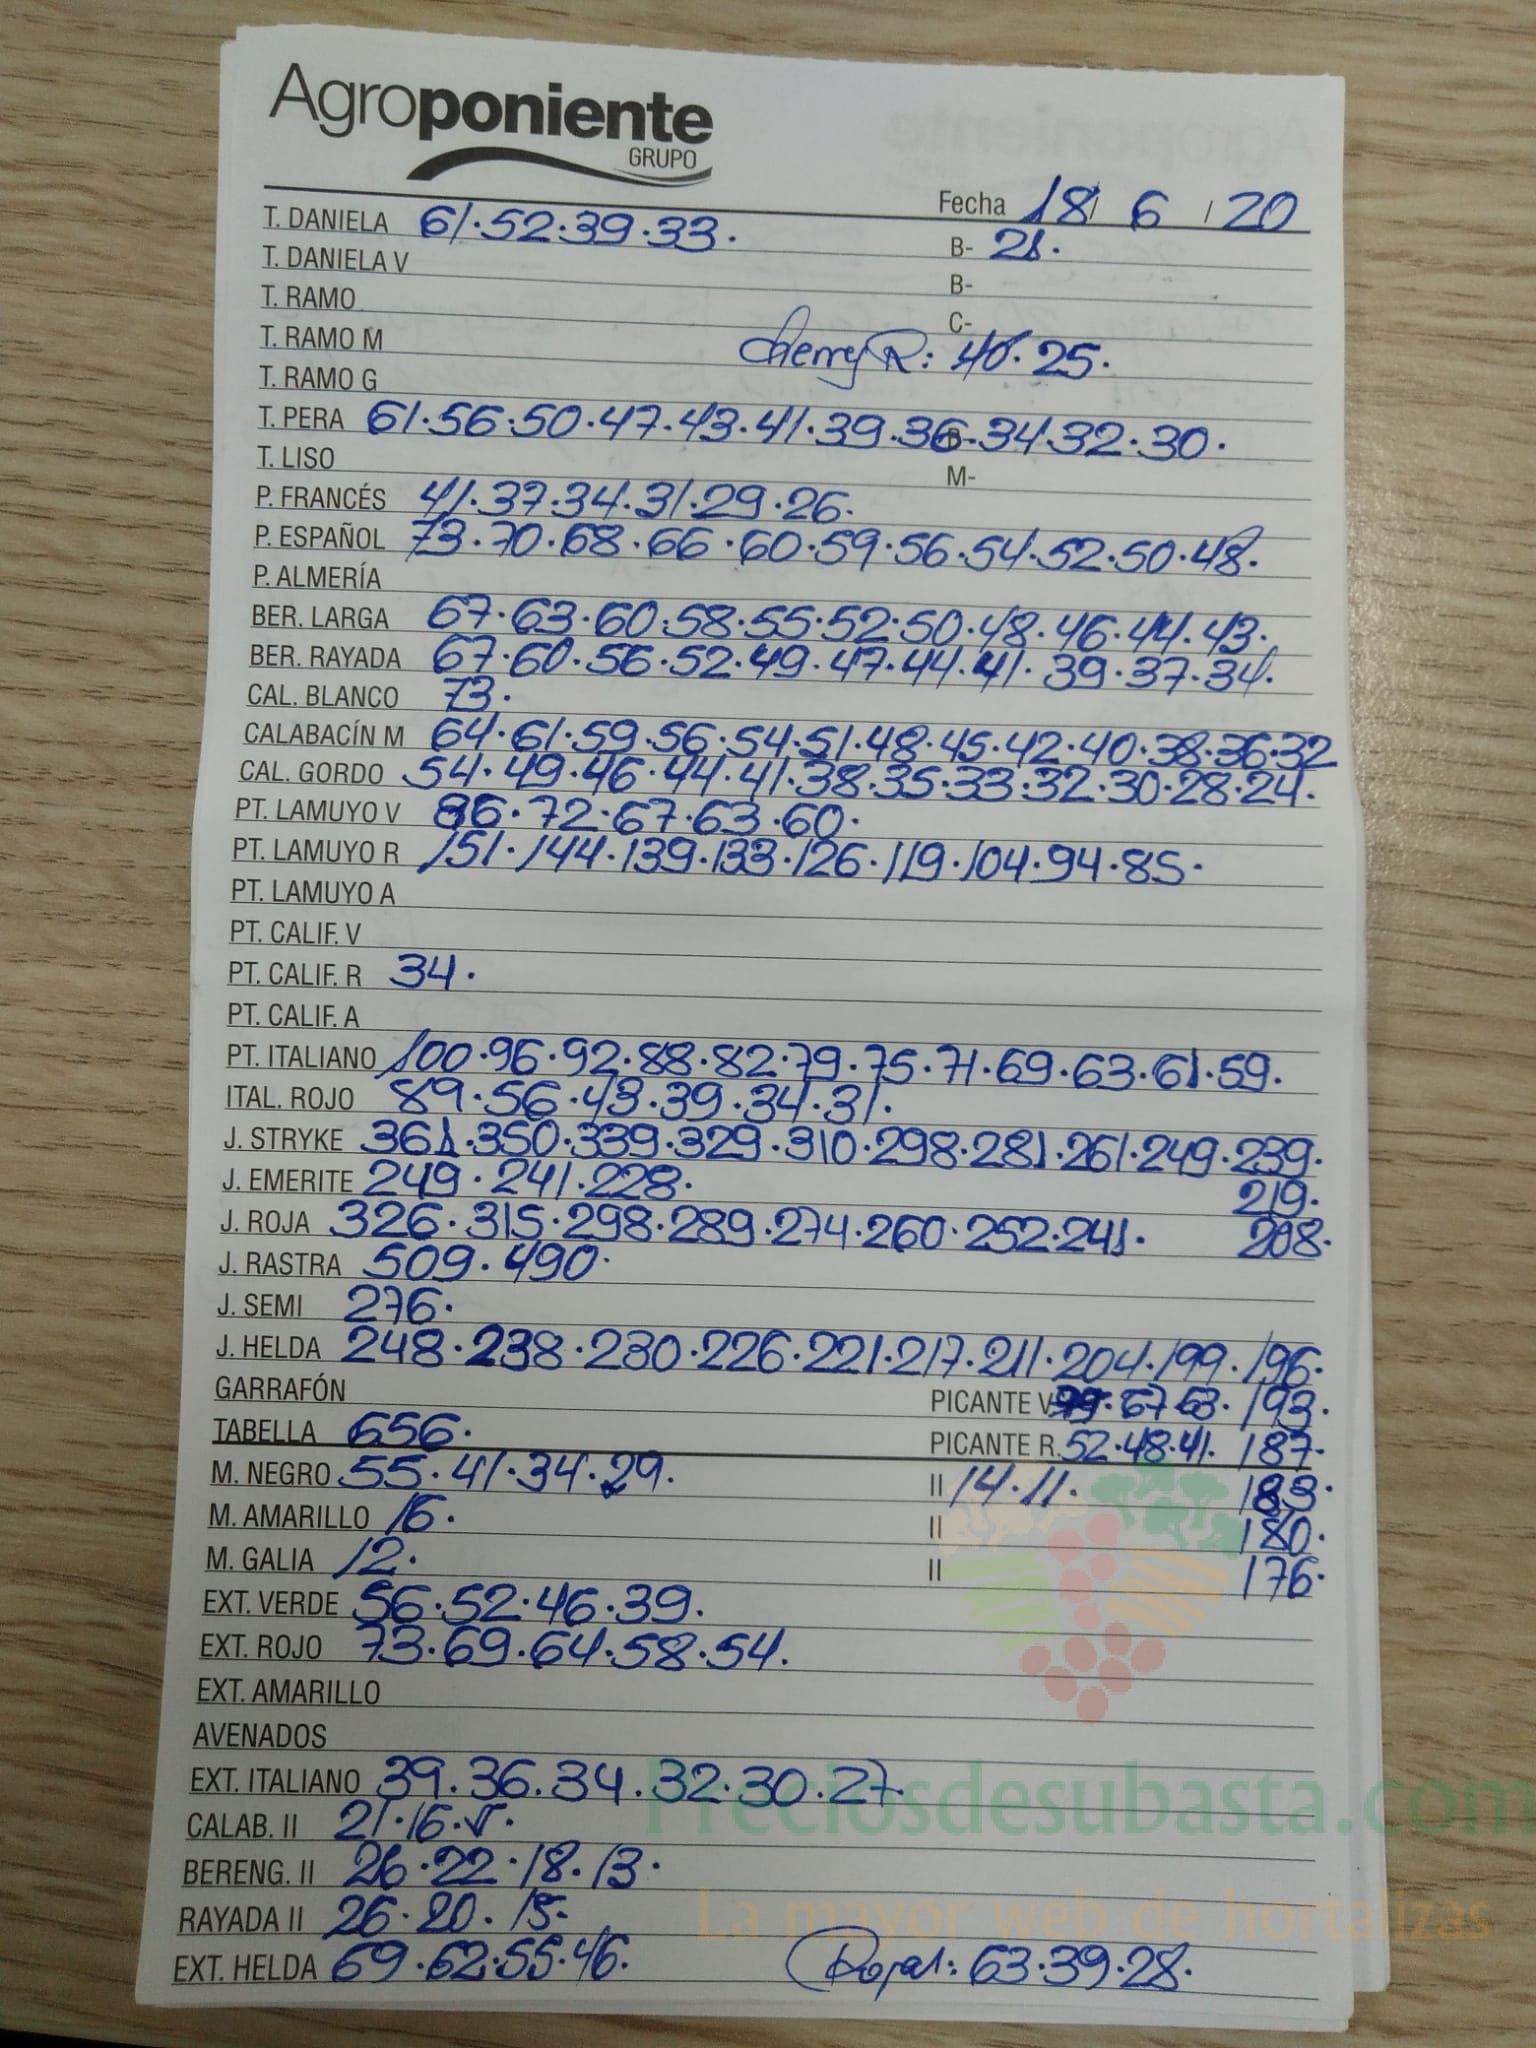 Agroponiente
GRUPO
Fecha 18/ 6 / 20
T. DANIELA 61.52.39.33. B- 21.
T. DANIELA V B-
T. RAMO C-
T. RAMO M Cherry R: 40. 25.
T. RAMO G
T. PERA 61.56.50.47.43.41.39.36.34.32.30. B-
T. LISO M-
P. FRANCÉS 41.37.34.31.29.26.
P. ESPAÑOL 73.70.68.66.60.59.56.54.52.50.48.
P. ALMERÍA
BER. LARGA 67.63.60.58.55.52.50.48.46.44.43.
BER. RAYADA 67.60.56.52.49.47.44.41.39.37.34.
CAL. BLANCO 73.
CALABACÍN M 64.61.59.56.54.51.48.45.42.40.38.36.32
CAL. GORDO 54.49.46.44.41.38.35.33.32.30.28.24.
PT. LAMUYO V 86.72.67.63.60.
PT. LAMUYO R 151.144.139.133.126.119.104.94.85.
PT. LAMUYO A
PT. CALIF. V
PT. CALIF. R 34.
PT. CALIF. A
PT. ITALIANO 100.96.92.88.82.79.75.71.69.63.61.59.
ITAL. ROJO 89.56.43.39.34.31.
J. STRYKE 361.350.339.329.310.298.281.261.249.239.
J. EMERITE 249.241.228. 219.
J. ROJA 326.315.298.289.274.260.252.241. 208.
J. RASTRA 509.490.
J. SEMI 276.
J. HELDA 248.238.230.226.221.217.211.204.199.196.
GARRAFÓN PICANTE V 67.63. 193.
TABELLA 656. PICANTE R. 52.48.41. 187.
M. NEGRO 55.41.34.29. II 14.11. 183.
M. AMARILLO 16. II 180.
M. GALIA 12. II 176.
EXT. VERDE 56.52.46.39.
EXT. ROJO 73.69.64.58.54.
EXT. AMARILLO
AVENADOS
EXT. ITALIANO 39.36.34.32.30.27.
Preciosdesubasta.com
CALAB. II 21.16.
BERENG. II 26.22.18.13.
RAYADA II 26.20.15.
La mayor web de hortalizas
EXT. HELDA 69.62.55.46. 63.39.28.